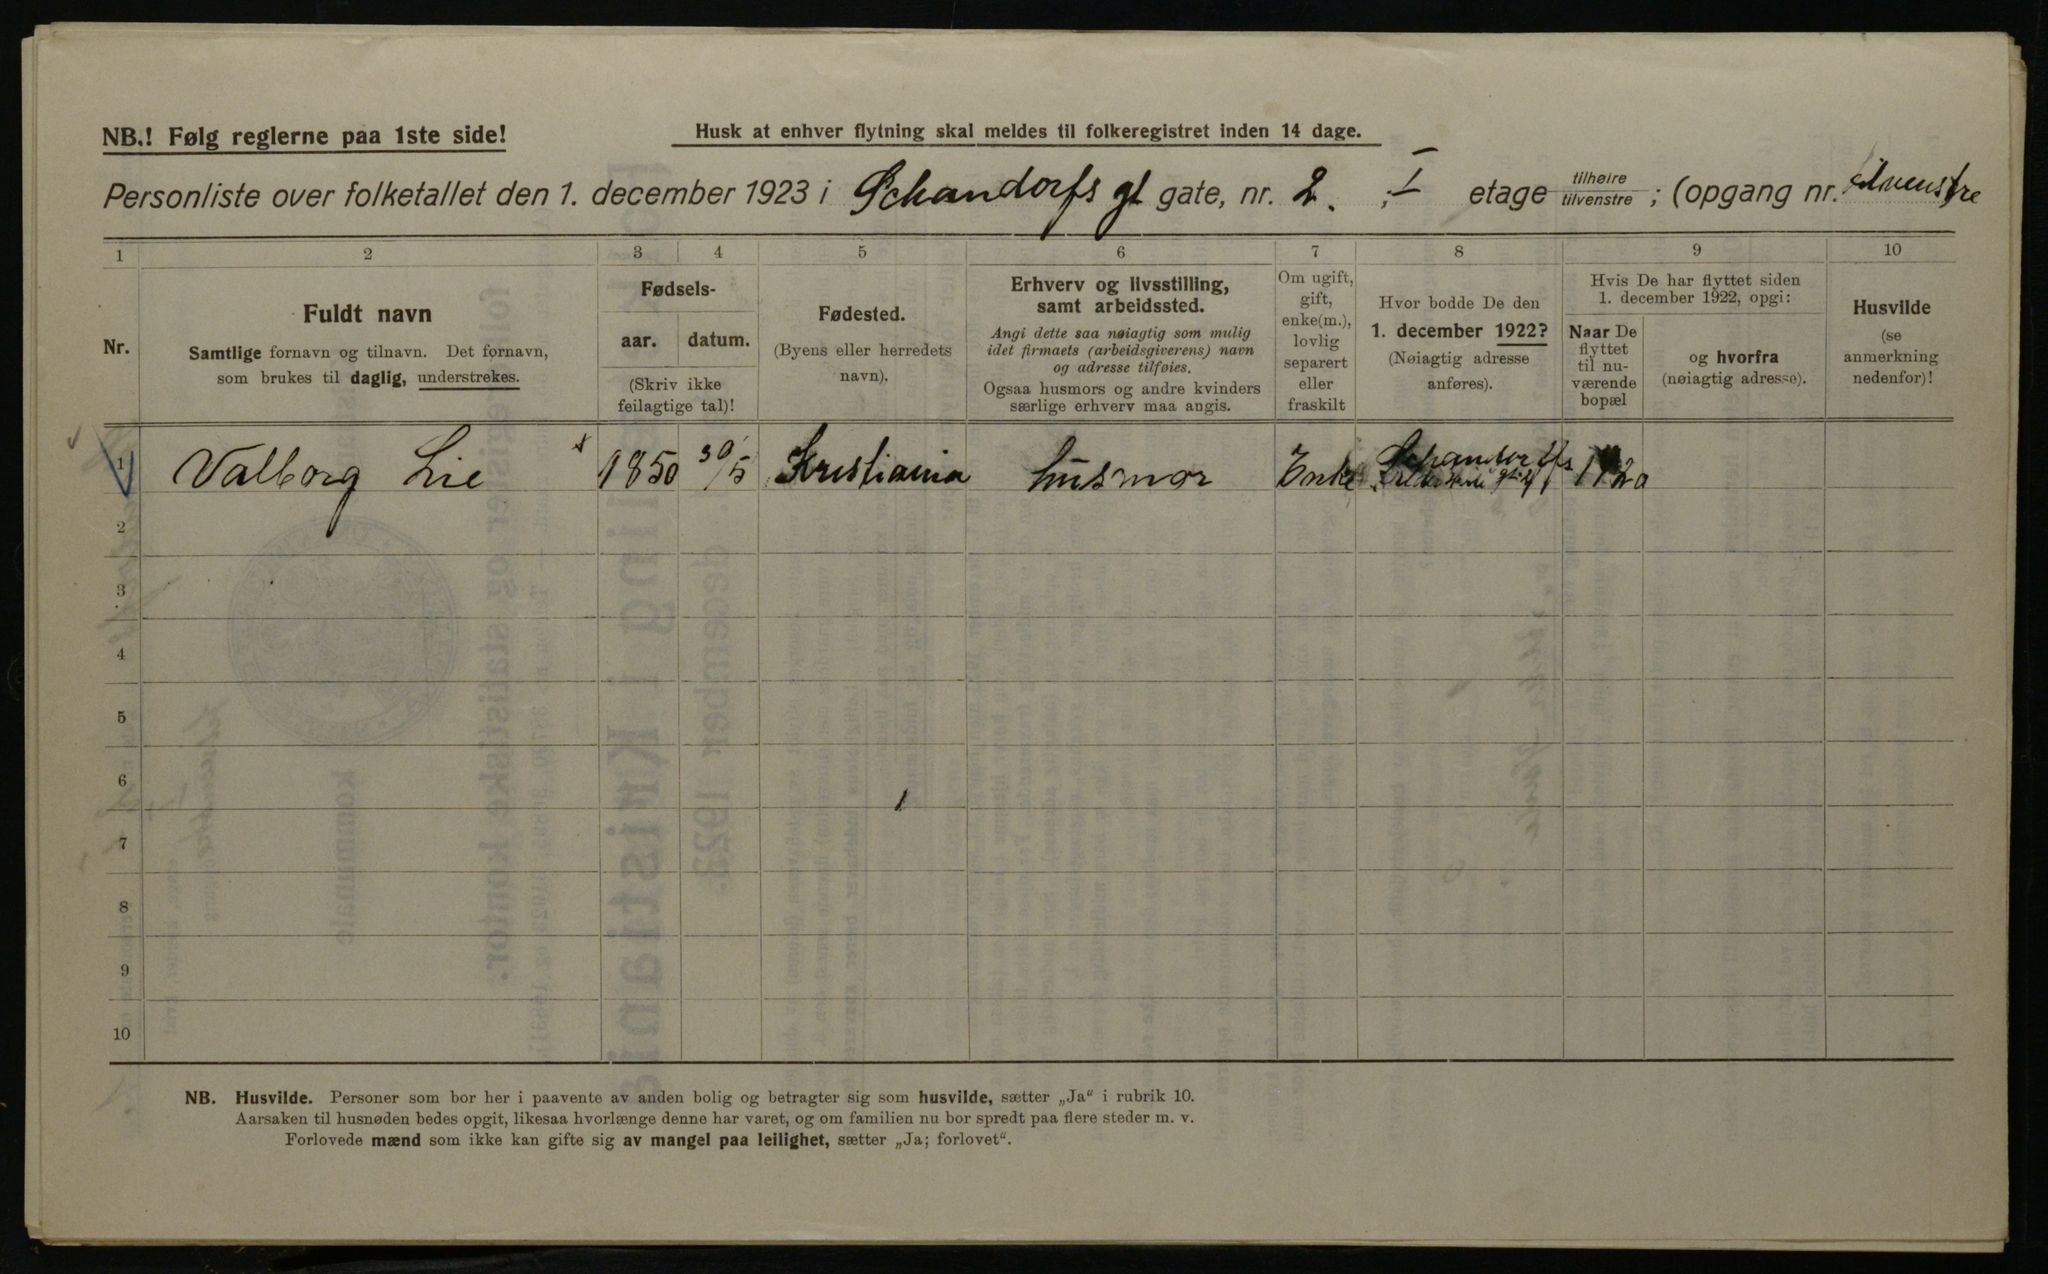 NB.! Følg reglerne paa 1ste side!
Husk at enhver flytning skal meldes til folkeregistret inden 14 dage.
Personliste over folketallet den 1. december 1923 i Schandorfs gt gate, nr. 2. ; I etage tilhøire tilvenstre ; (opgang nr. tilvenstre
1 2 3 4 5 6 7 8 9 10
Nr.
Fuldt navn
Samtlige fornavn og tilnavn. Det fornavn,
som brukes til daglig, understrekes.
Fødsels-
aar. datum.
(Skriv ikke
feilagtige tal)!
Fødested.
(Byens eller herredets
navn).
Erhverv og livsstilling,
samt arbeidssted.
Angi dette saa nøiagtig som mulig
idet firmaets (arbeidsgiverens) navn
og adresse tilføies.
Ogsaa husmors og andre kvinders
særlige erhverv maa angis.
Om ugift,
gift,
enke(m.),
lovlig
separert
eller
fraskilt
Hvor bodde De den
1. december 1922?
(Nøiagtig adresse
anføres).
Hvis De har flyttet siden
1. december 1922, opgi:
Naar De
flyttet
til nu-
værende
bopæl
og hvorfra
(nøiagtig adresse).
Husvilde
(se
anmerkning
nedenfor)!
1 Valborg Lie 1850 30/5 Kristiania husmor Enke Schandorffs 1920
2
3
4
5
6
7
8
9
10
NB. Husvilde. Personer som bor her i paavente av anden bolig og betragter sig som husvilde, sætter „Ja“ i rubrik 10.
Aarsaken til husnøden bedes opgit, likesaa hvorlænge denne har varet, og om familien nu bor spredt paa flere steder m. v.
Forlovede mænd som ikke kan gifte sig av mangel paa leilighet, sætter „Ja; forlovet“.